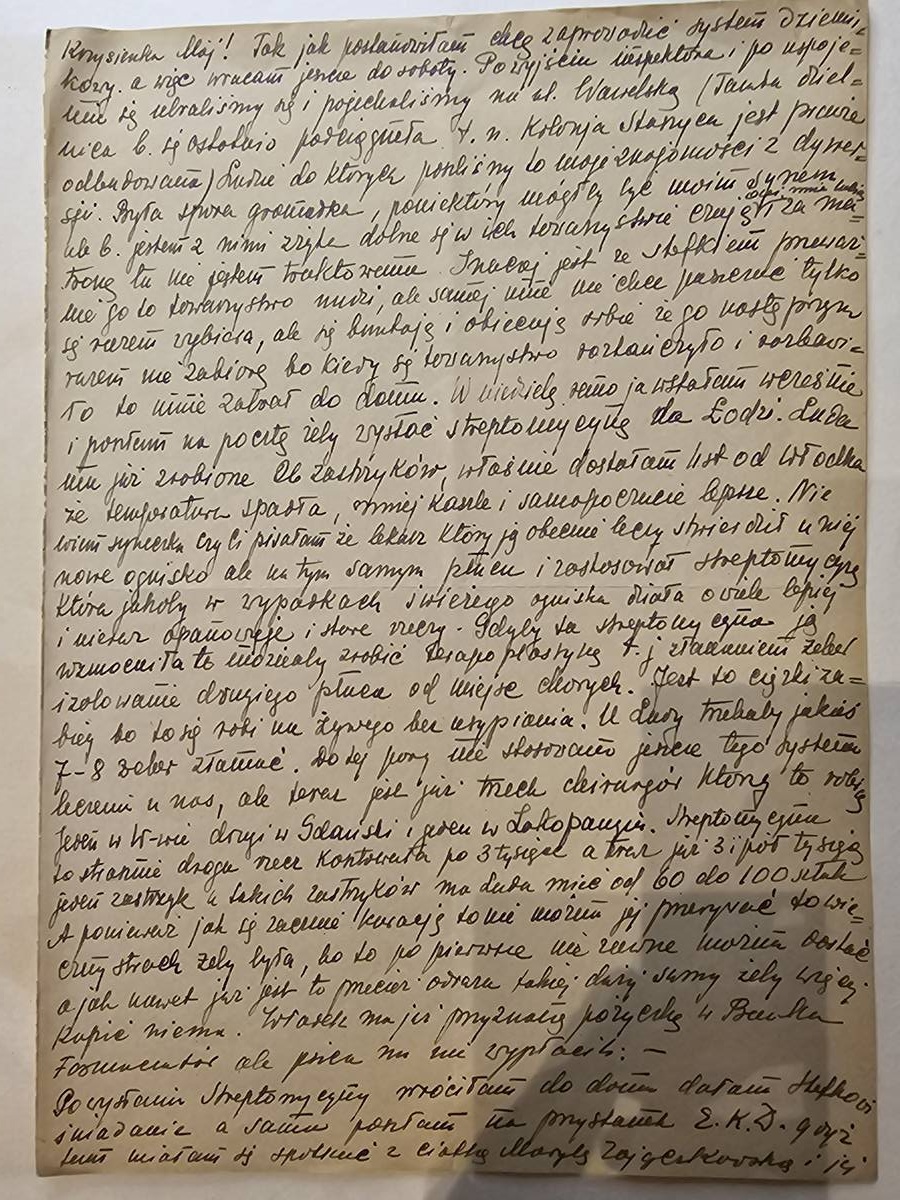 Krzysieńka Mój! Tak jak postanowiłam chcę zaprowadzić system dzienni-
kowy. a więc wracam jeszcze do soboty. Po wyjściu inspektora i po uspoje-
niu się ubraliśmy się i pojechaliśmy na ul. Wawelską (Tamta dziel-
nica b. się ostatnio podciągnęła t. n. Kolonja Staszyca jest prawie
odbudowana) Ludzie do których poszliśmy to moje znajomości z dywer-
sji. Była spora gromadka, poniektórzy mogłby być moim synem,
ale b. jestem z nimi zżyta dobrze się w ich towarzystwie czuję i za ma-
tronę tu nie jestem traktowana. Inaczej jest ze Stefkiem prawdzi-
nie go to towarzystwo nudzi, ale samej mnie nie chce puszczać tylko
się razem wybiera, ale się buntują i obiecują sobie że go następnym
razem nie zabiorę bo kiedy się towarzystwo roztańczyło i rozbawi-
ło to mnie zabrał do domu. W niedzielę rano ja wstałam wcześnie
i poszłam na pocztę żeby wysłać streptomycynę do Łodzi. Luda
ma już zrobione 26 zastrzyków, właśnie dostałam list od Włodka
że temperatura spadła, mniej kaszle i samopoczucie lepsze. Nie
wiem syneczku czy Ci pisałam że lekarz który ją obecnie leczy stwierdził u niej
nowe ognisko ale na tym samym płucu i zastosował streptomycynę
która jakoby w wypadkach świeżego ogniska działa o wiele lepiej
i nieraz opanowuje i stare rzeczy. Gdyby ta streptomycyna ją
wzmocniła to możnaby zrobić terapoplastykę t. j złamaniem żeber
izolowanie drugiego płuca od miejsc chorych. Jest to ciężki za-
bieg bo to się robi na żywego bez usypiania. U Ludy trzebaby jakieś
7-8 żeber złamać. Do tej pory nie stosowano jeszcze tego systemu
leczenia u nas, ale teraz jest już trzech chirurgów którzy to robią
jeden w W-wie drugi w Gdańsku i jeden w Zakopanym. Streptomycyna
to strasznie droga rzecz kosztowała po 3 tysiące a teraz już 3 i pół tysiąca
jeden zastrzyk a takich zastrzyków ma Luda mieć od 60 do 100 sztuk
A ponieważ jak się zacznie kurację to nie można jej przerywać to wie-
czny strach żeby była, bo to po pierwsze nie zawsze można dostać
a jak nawet już jest to przecież odrazu takiej dużej sumy żeby więcej
kupić niema. Władek ma już przyznaną pożyczkę w Banku
Farmaceutów ale póki co mu nie wypłacili. —
Po wysłaniu Streptomycyny wróciłam do domu dałam Stefkowi
śniadanie a sama poszłam na przystanek E.K.D. gdyż
tam miałam się spotkać z ciotką Marylą Zajączkowską i jej